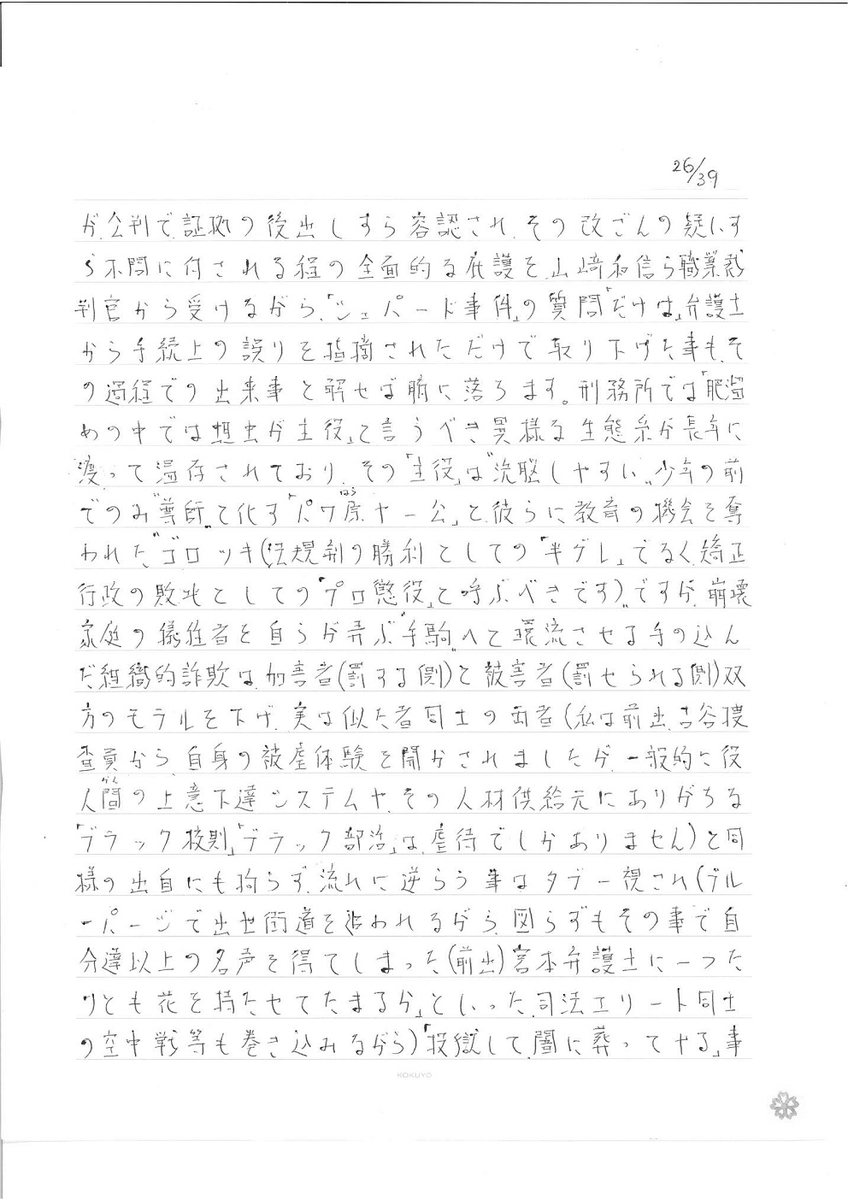 26/39
が、公判で、証拠の後出しすら容認され、その改ざんの疑いす
ら不問に付される程の全面的な庇護を、山﨑和信ら職業裁
判官から受けながら、「シェパード事件」の質問「だけは」弁護士
から手続上の誤りを指摘されただけで取り下げた事も、そ
の過程での出来事と解せば腑に落ちます。刑務所では「肥溜
めの中では蛆虫が主役」と言うべき異様な生態系が長年に
渡って温存されており、その「主役」は"洗脳しやすい"少年の前
でのみ"尊師"と化す「パワ原ヤー公」と、彼らに教育の機会を奪
はら
われた"ゴロツキ(法規制の勝利としての「半グレ」でなく、矯正
行政の敗北としての「プロ懲役」と呼ぶべきです)"ですが、崩壊
家庭の犠牲者を自らが弄ぶ「手駒」へと還流させる手の込ん
だ組織的詐欺は、加害者(罰する側)と被害者(罰せられる側)双
方のモラルを下げ、実は似た者同士の両者(私は前出、古谷捜
査員から、自身の被虐体験を聞かされましたが、一般的に役
人間の上意下達システムや、その人材供給元にありがちな
かん
「ブラック校則」「ブラック部活」は、虐待でしかありません)と同
様の出自にも拘らず、流れに逆らう事はタブー視され(ブル
ーパージで出世街道を追われながら、図らずもその事で自
分達以上の名声を得てしまった(前出)宮本弁護士に一つた
りとも花を持たせてたまるか」といった、司法エリート同士
の空中戦等も巻き込みながら)「投獄して、闇に葬ってやる」事
KOKUYO